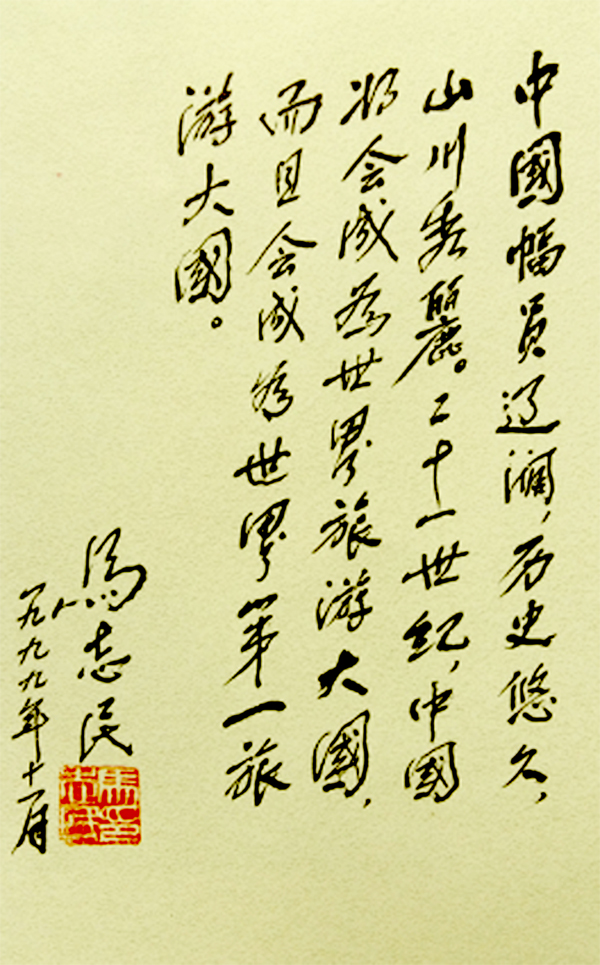 中國幅員辽濶，历史悠久，
山川秀麗。二十一世紀，中國
将会成為世界旅游大國，
而且会成為世界第一旅
游大國。
馬志民
一九九九年十一月
馬志民印